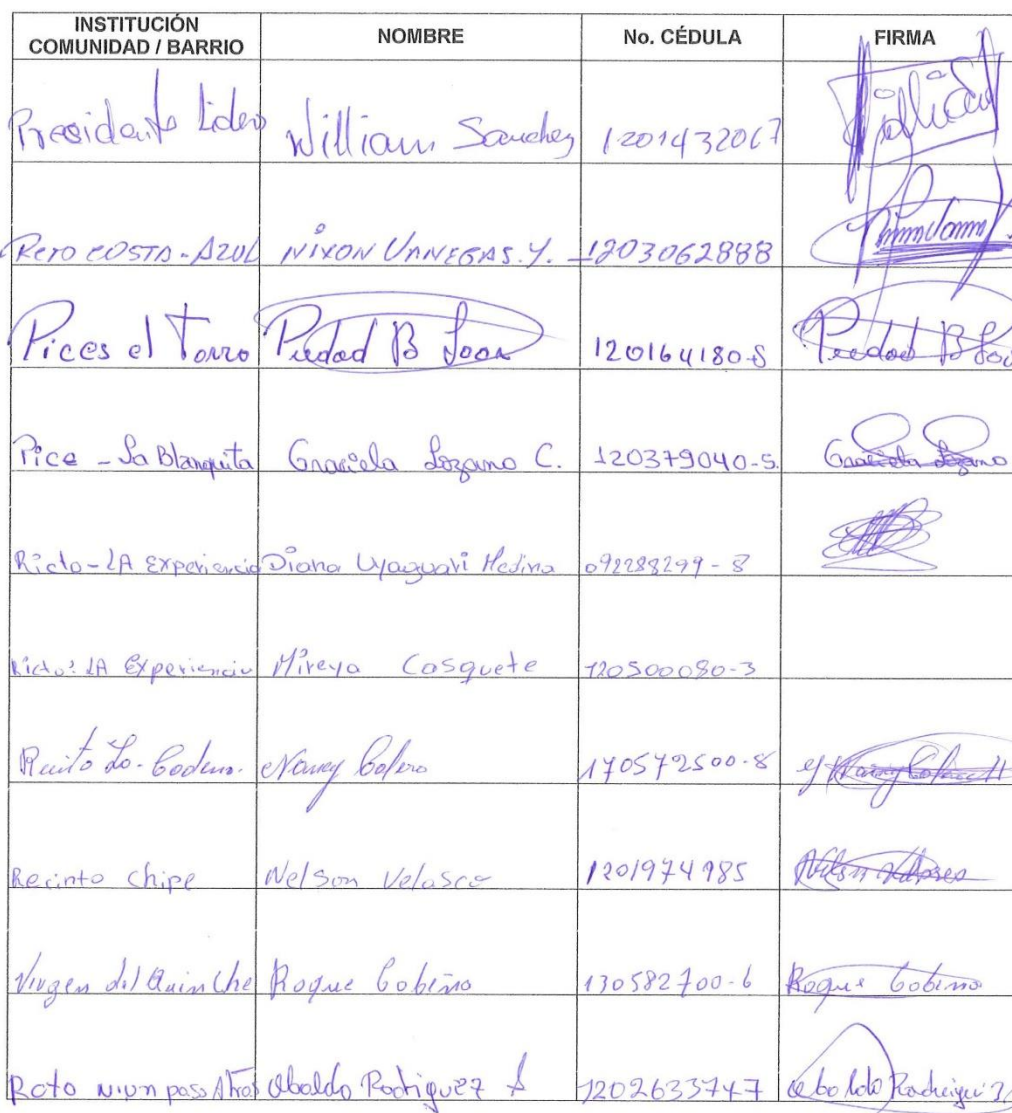 INSTITUCIÓN
COMUNIDAD / BARRIO NOMBRE No. CÉDULA FIRMA
Presidente Lidero William Sanchez 1201432067 William
Rcto COSTA-AZUL NIXON VANEGAS. Y. 1203062888
Pices el Torro Piedad B Loor 120164180-5 Piedad B Loor
Pice - La Blanquita Graciela Lozano C. 120379040-5. Graciela Lozano
Ricto-LA Experiencia Diana Uyaguari Medina 092288299-8
Ricto: LA Experiencia Mireya Casquete 120500080-3
Nancy 170572500-8 Nancy
Recinto Chipe Nelson Velasco 1201974985 Nelson Velasco
Virgen del Quinche Roque Cobeña 130582700-6 Roque Cobeña
Rcto Ni un paso Atras Obaldo Rodriguez 1202633747 Obaldo Rodriguez